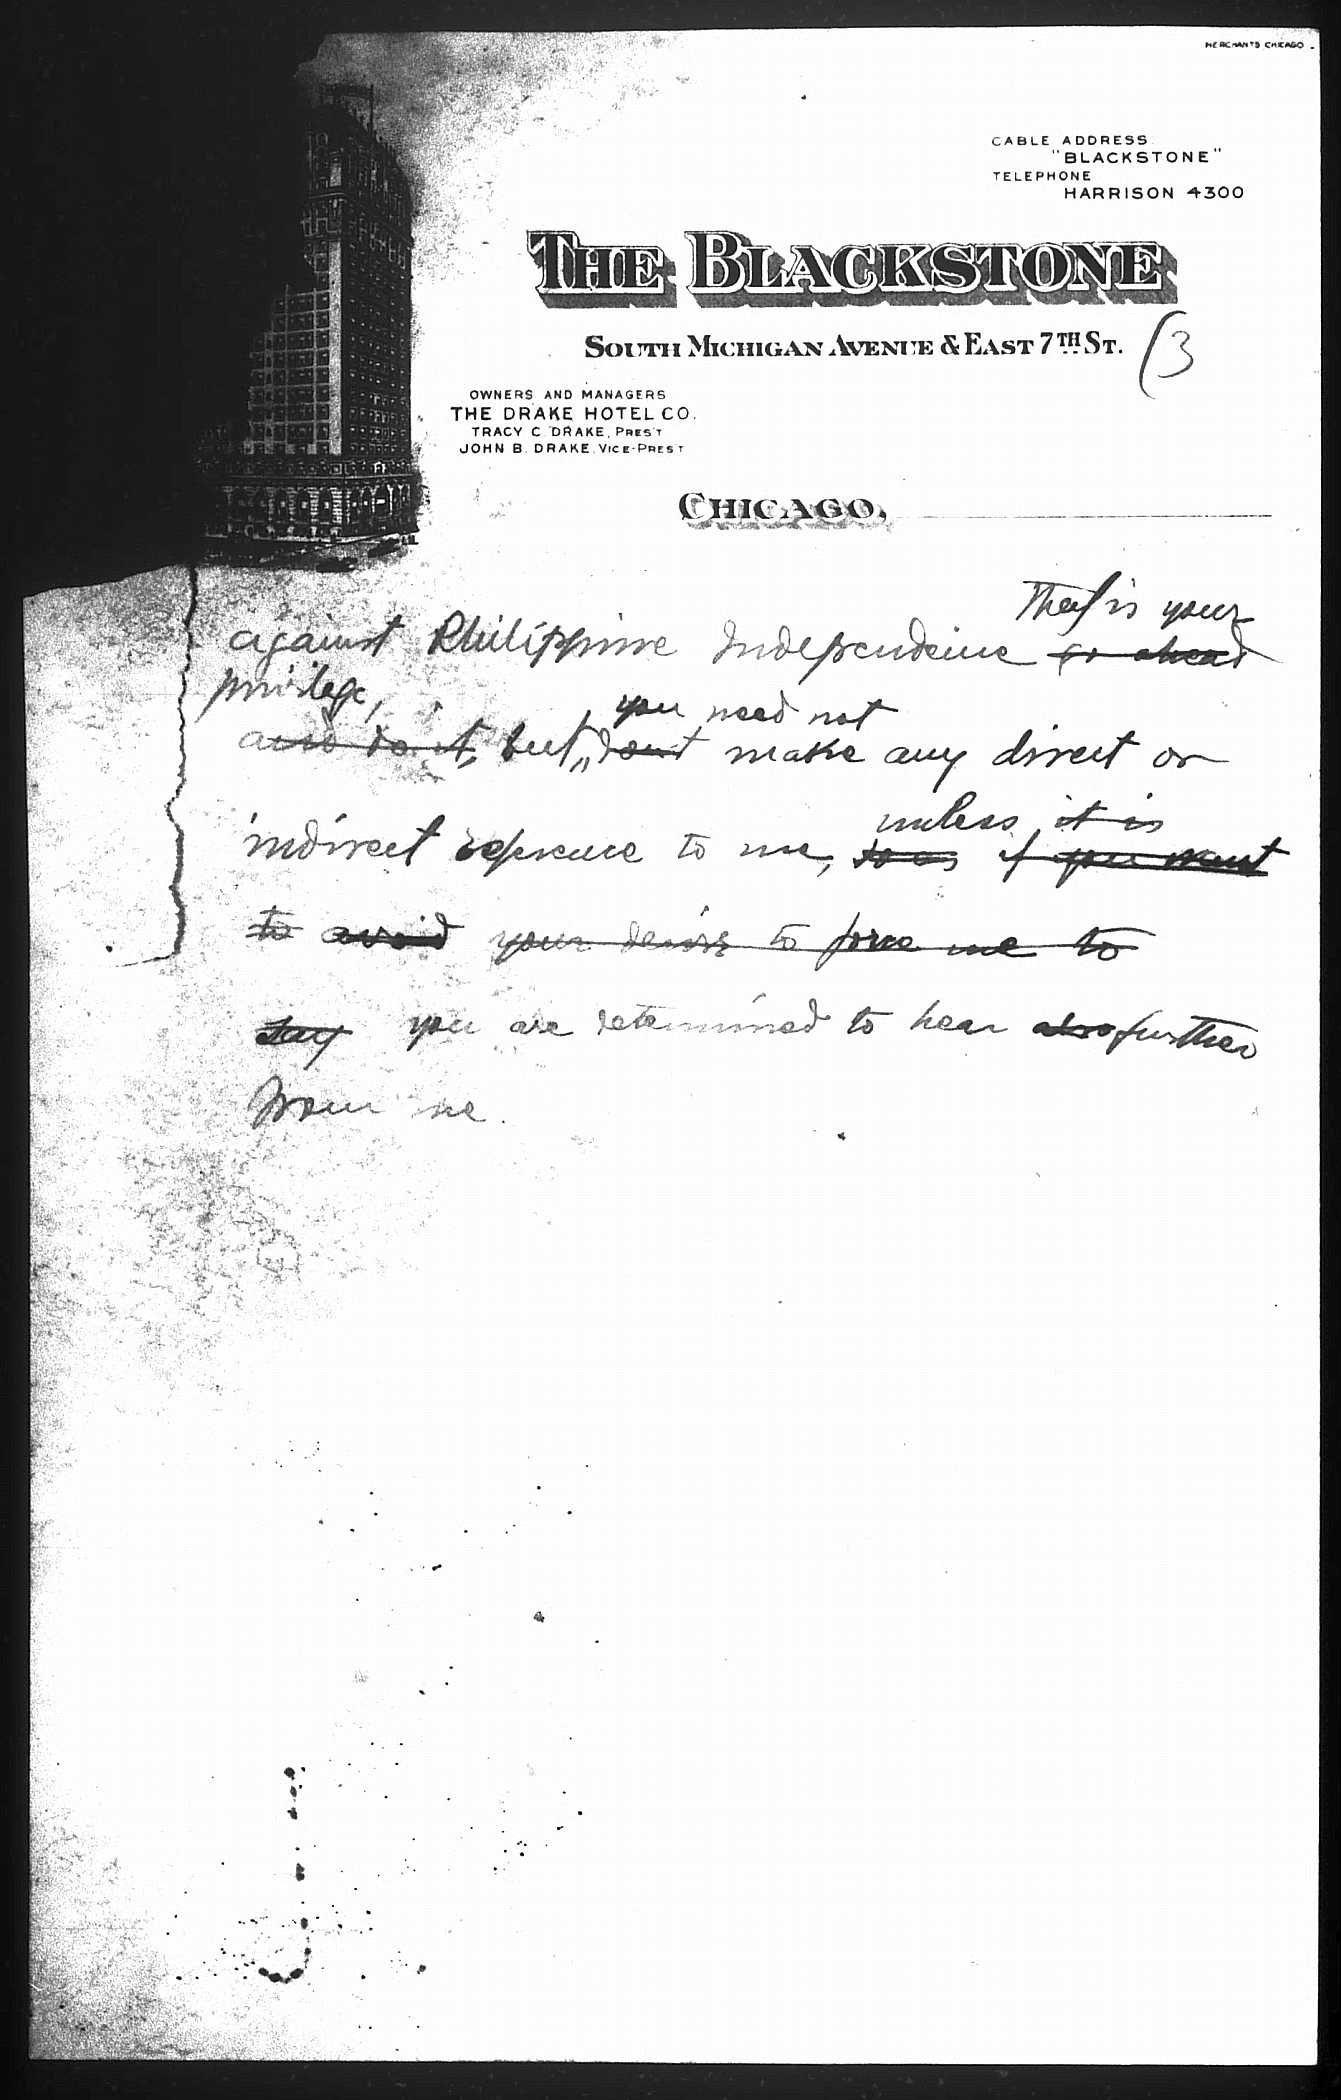 MERCHANTS CHICAGO
CABLE ADDRESS
"BLACKSTONE"
TELEPHONE
HARRISON 4300
THE BLACKSTONE
SOUTH MICHIGAN AVENUE & EAST 7TH ST.
(3
OWNERS AND MANAGERS
THE DRAKE HOTEL CO.
TRACY C. DRAKE, PRES'T
JOHN B. DRAKE, VICE-PRES'T
CHICAGO,
That is your
against Philippine Independence go ahead
privilege,
you need not
and do it, but, don't make any direct or
unless it is
indirect reference to me, so as if you want
to avoid your desire to force me to
say you are determined to hear also further
from me.